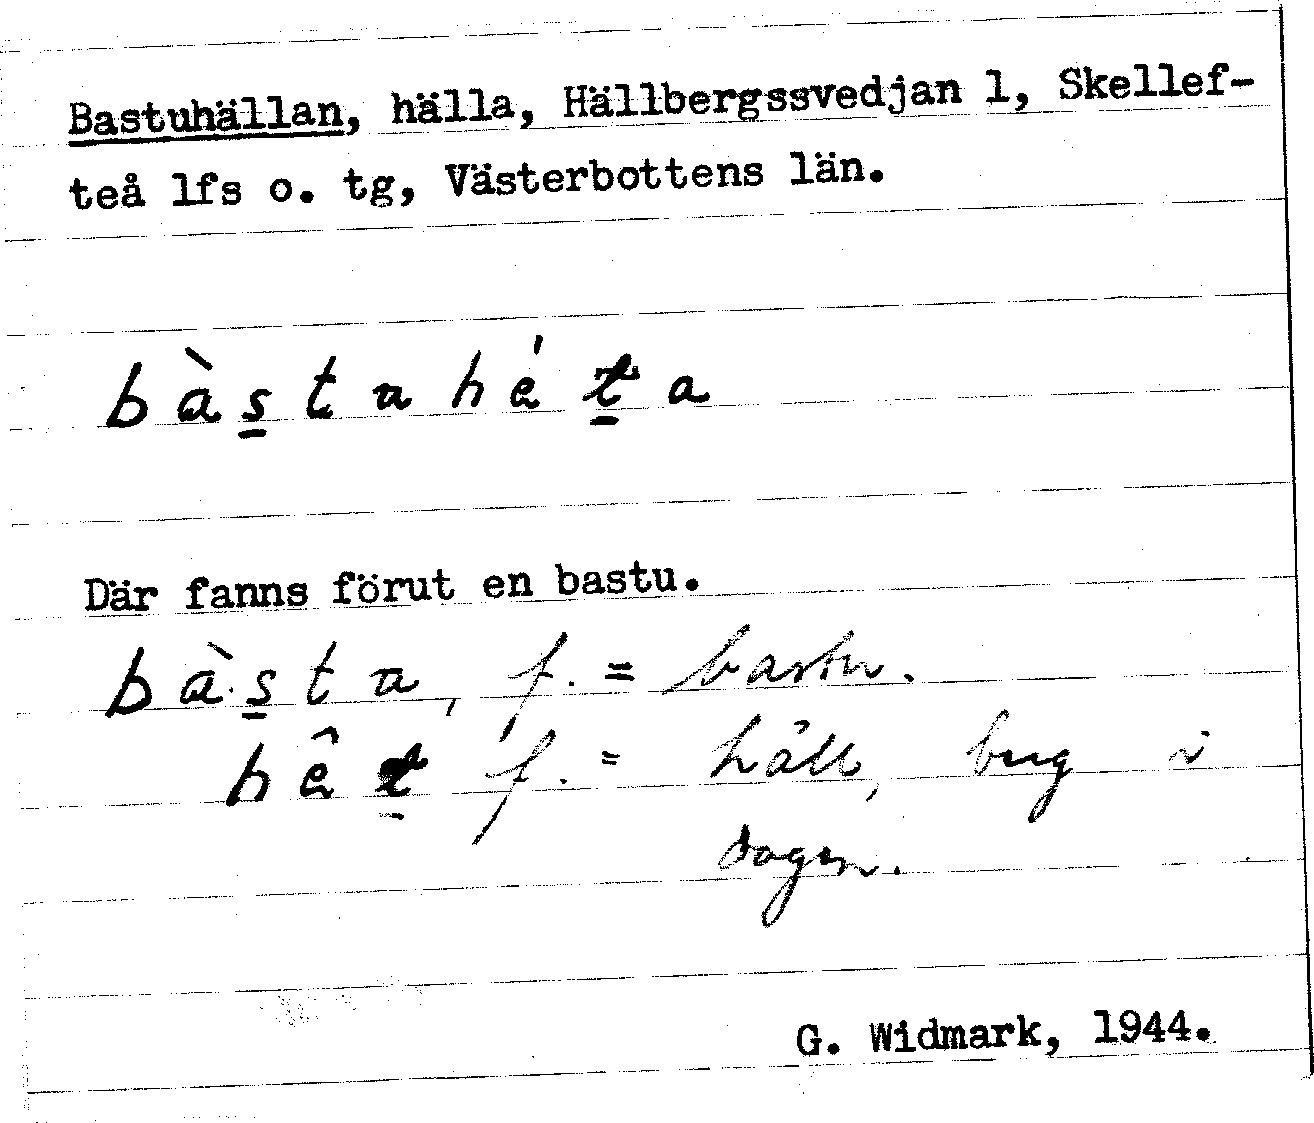 Bastuhällan, hälla, Hällbergssvedjan 1, Skellef-
teå lfs o. tg, Västerbottens län.
bàs̱tuhéṯa
Där fanns förut en bastu.
bàs̱tu, f. = bastu.
hêṯ f. = häll, i
dagen.
G. Widmark, 1944.